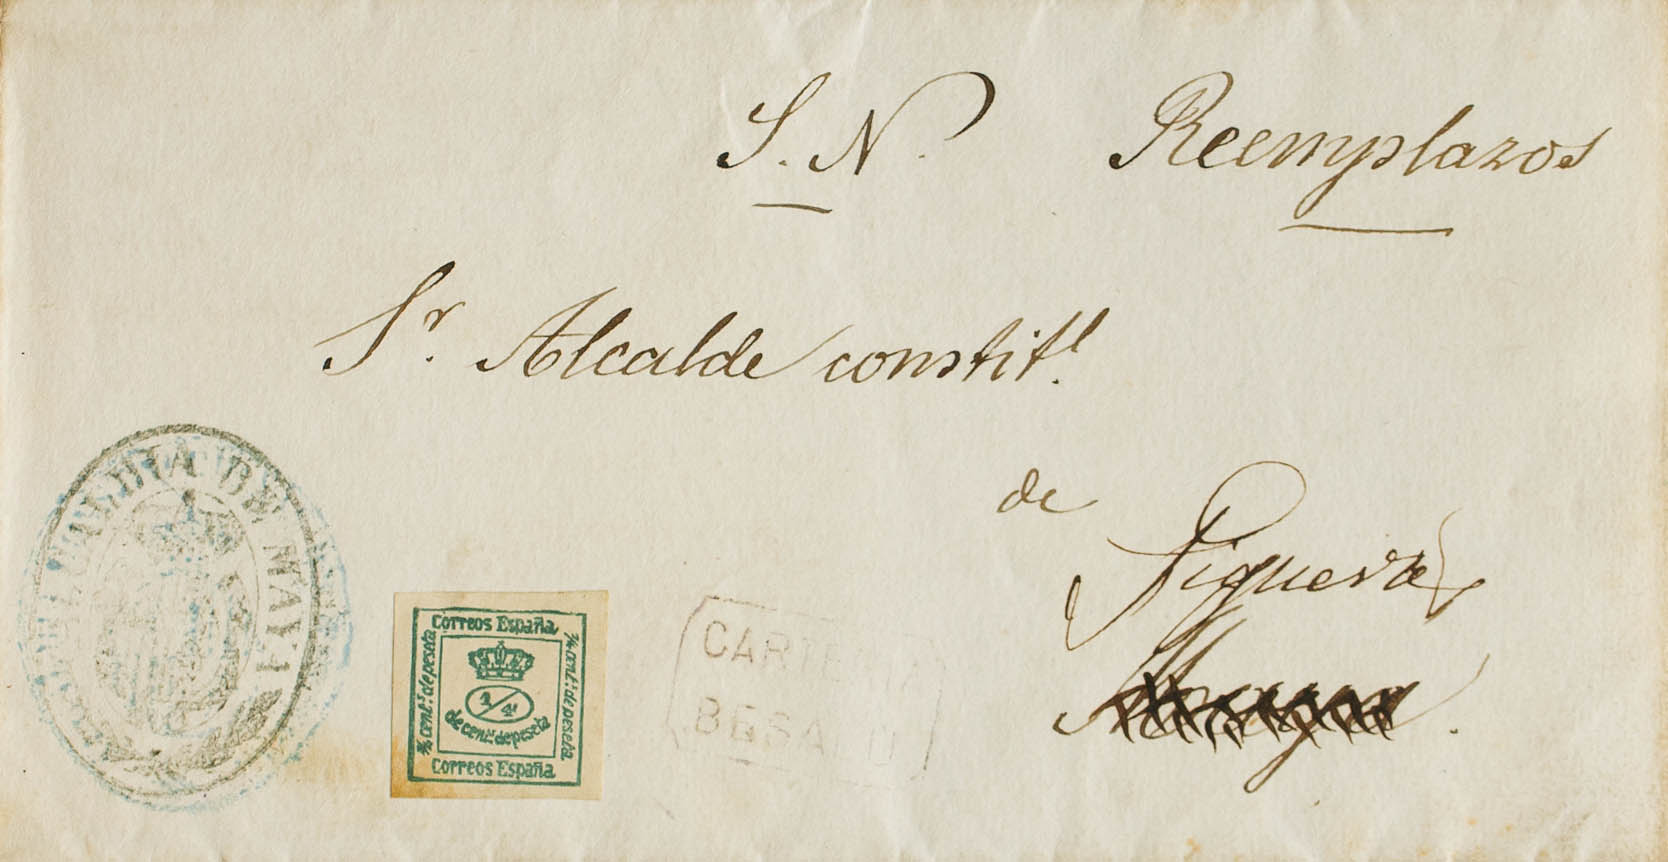 S. N. Reemplazos
Sr. Alcalde constitl.
de
Figueras
ALCALDIA DE MAYA
Correos España
2/4 cent.s de peseta
1/4 cent.s de peseta
1/4
de cent.s de peseta
Correos España
CARTERIA
BESALU